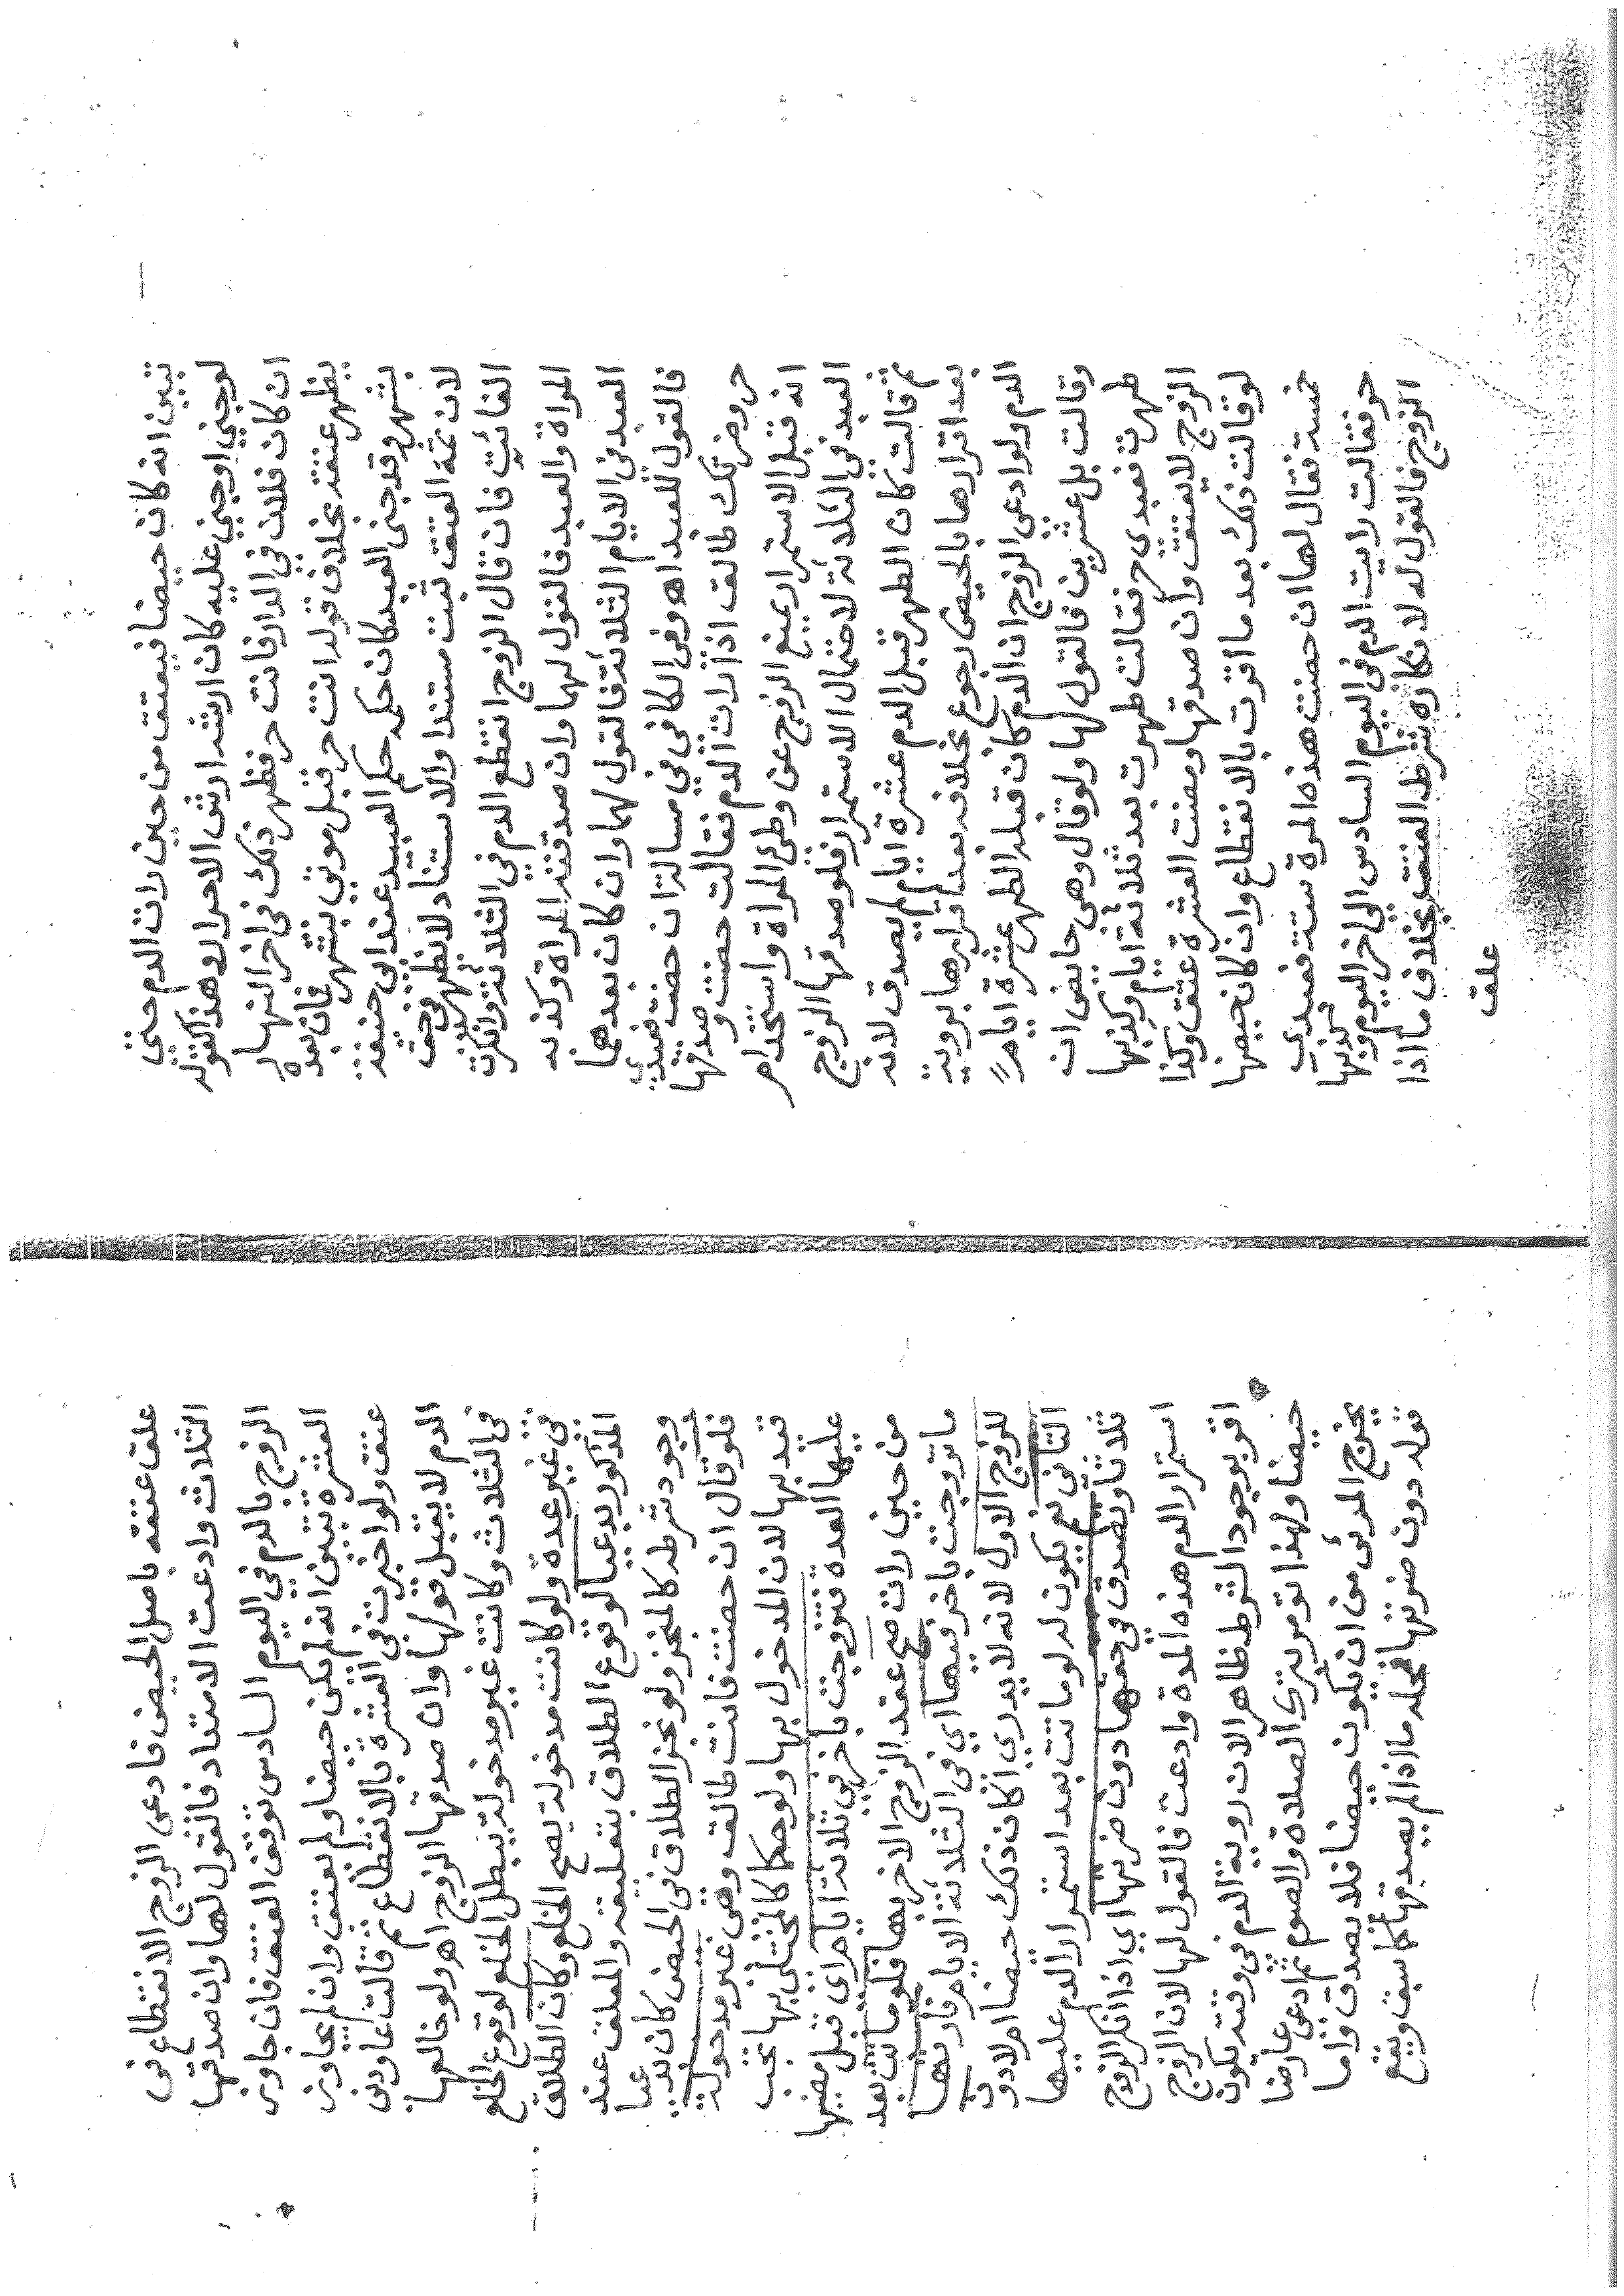 تبين انه كان حيضا فيعتق من حين رات الدم حتى
لوجني اوجني عليه كان ارشه ارش الاحرار وهذا كقوله
ان كان فلان في الدار فانت حر فظهر ذلك في اخر النهار
يظهر عتقه بخلاف قوله انت حر قبل موتي بشهر فمات بعده
بشهر وقد جنى العبد كان حكمه حكم العبيد عند ابي حنيفة
لان ثمة العتق ثبت مستندا والاستناد لا يظهر في حق
الفائت فان قال الزوج انقطع الدم في الثلاثة وانكرت
المراة والعبد فالقول لهما وان صدقته المراة وكذبه
العبد في الايام الثلاثة فالقول لهما وان كان بعدهما
فالقول للعبد اهـ وفي الكافي في مسالة ان حضت فعبدي
حر وضرتك طالق اذا رات الدم فقالت حضت وصدقها
انه قبل الاستمرار يمنع الزوج عن وطئ المراة واستخدام
العبد في الثلاثة لاحتمال الاستمرار فلو صدقها الزوج
ثم قالت كان الطهر قبل الدم عشرة ايام لم يصدق لانه
بعد اقرارها بالحيض رجوع بخلافه بعد اقرارها بروية
الدم ولو ادعى الزوج ان الدم كان قبله الطهر عشرة ايام
وقالت بل عشرين فالقول لها ولو قال وهي حايض ان
طهرت فعبدي حر فقالت طهرت بعد ثلاثة ايام وكذبها
الزوج لا يعتق وان صدقها ومضت العشرة عتق وكذا
لو قالت ذلك بعد ما اقرت بالانقطاع وان كان حيضها
خمسة فقال لها ان حضت هذه المرة ستة فعبدي
حر فقالت رايت الدم في اليوم السادس الى اخر اليوم وكذبها
الزوج فالقول له لانكاره شرط العتق بخلاف ما اذا
علق
علق عتقه باصل الحيض فادعى الزوج الانقطاع في
الثلاث وادعت الامتداد فالقول لها وان صدقها
الزوج بالدم في اليوم السادس توقف العتق فان جاوز
العشرة تبين انه لم يكن حيضا ولم يعتق وان لم يجاوز
عتق ولو اخبرت في العشرة بالانقطاع ثم قالت عاودني
الدم لا يقبل قولها وان صدقها الزوج اهـ ولو خالعها
في الثلاث وكانت غير مدخولة يبطل الخلع لوقوع الخلع
في غير عدة ولو كانت مدخولة يصح الخلع وكان الطلاق
المذكور بدعيا لوقوع الطلاق بتعليقه والمعلق عند
وجود شرطه كالمنجز ولو نجز الطلاق في الحيض كان بدعيا
فلو قال ان حضت فانت طالق وهي غير مدخولة
قيد بها لان المدخول بها ولو حكما كالمختلى بها تجب
عليها العدة فتزوجت باخر في ثلاثة ايام اي قبل مضيها
من حين رات صح عقد الزوج الاخر بها فلو ماتت بعد
ما تزوجت باخر فيها اي في الثلاثة الايام فارثها
للزوج الاول لانه لا يدري اكان ذلك حيضا ام لا دون
الثاني ثم يكون له لو ماتت بعد استمرار الدم عليها
ثلاثا وتصدق في حقها دون ضرتها اي اذا انكر الزوج
استرار الدم هذه المدة وادعت فالقول لها لان الزوج
اقر بوجود الشرط ظاهرا لان روية الدم في وقته يكون
حيضا ولهذا تومر بترك الصلاة والصوم ثم ادعى عارضا
يخرج المرئى من ان يكون حيضا فلا يصدق واما
قوله دون ضرتها فمحله ما اذا لم يصدقها كما سبق ويقع